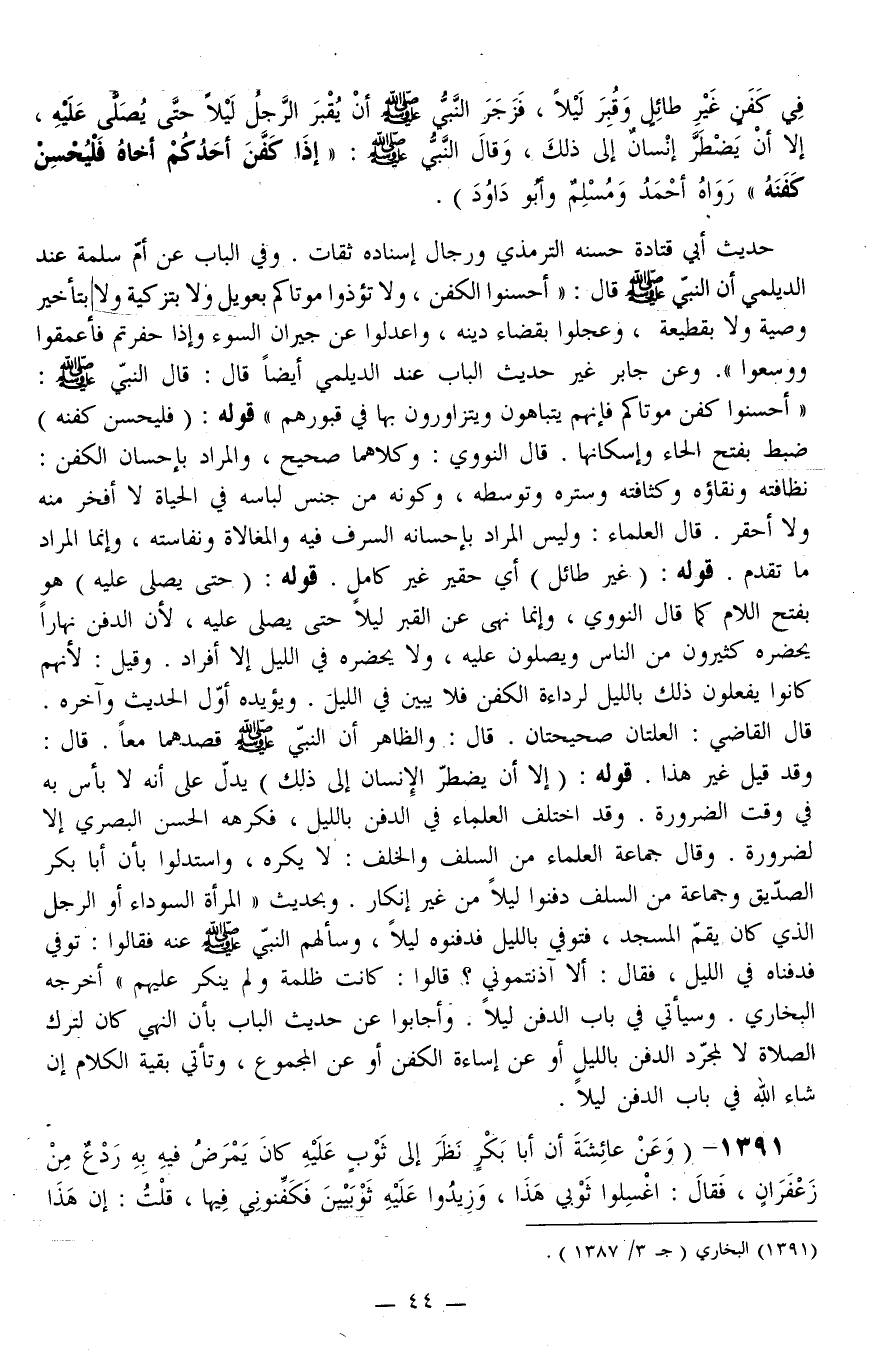 فِي كَفَنٍ غَيْرِ طائِلٍ وَقُبِرَ لَيْلاً ، فَزَجَرَ النَّبيُّ ﷺ أنْ يُقْبَرَ الرَّجلُ لَيْلاً حتَّى يُصَلَّى عَلَيْهِ ،
إلا أنْ يَضْطَرَّ إنْسانٌ إلى ذلكَ ، وَقالَ النَّبيُّ ﷺ : « إذَا كَفَّنَ أحَدُكُمْ أخاهُ فَلْيُحْسِنْ
كَفَنَهُ » رَوَاهُ أحْمَدُ وَمُسْلِمٌ وأبُو دَاوُدَ ) .
حديث أبي قتادة حسنه الترمذي ورجال إسناده ثقات . وفي الباب عن أمّ سلمة عند
الديلمي أن النبيّ ﷺ قال : « أحسنوا الكفن ، ولا تؤذوا موتاكم بعويل ولا بتزكية ولا بتأخير
وصية ولا بقطيعة ، وعجلوا بقضاء دينه ، واعدلوا عن جيران السوء وإذا حفرتم فأعمقوا
ووسعوا ». وعن جابر غير حديث الباب عند الديلمي أيضاً قال : قال النبيّ ﷺ :
« أحسنوا كفن موتاكم فإنهم يتباهون ويتزاورون بها في قبورهم » قوله : ( فليحسن كفنه )
ضبط بفتح الحاء وإسكانها . قال النووي : وكلاهما صحيح ، والمراد بإحسان الكفن :
نظافته ونقاؤه وكثافته وستره وتوسطه ، وكونه من جنس لباسه في الحياة لا أفخر منه
ولا أحقر . قال العلماء : وليس المراد بإحسانه السرف فيه والمغالاة ونفاسته ، وإنما المراد
ما تقدم . قوله : ( غير طائل ) أي حقير غير كامل . قوله : ( حتى يصلى عليه ) هو
بفتح اللام كما قال النووي ، وإنما نهى عن القبر ليلاً حتى يصلى عليه ، لأن الدفن نهاراً
يحضره كثيرون من الناس ويصلون عليه ، ولا يحضره في الليل إلا أفراد . وقيل : لأنهم
كانوا يفعلون ذلك بالليل لرداءة الكفن فلا يبين في الليل . ويؤيده أوّل الحديث وآخره .
قال القاضي : العلتان صحيحتان . قال : والظاهر أن النبيّ ﷺ قصدهما معاً . قال :
وقد قيل غير هذا . قوله : ( إلا أن يضطرّ الإنسان إلى ذلك ) يدلّ على أنه لا بأس به
في وقت الضرورة . وقد اختلف العلماء في الدفن بالليل ، فكرهه الحسن البصري إلا
لضرورة . وقال جماعة العلماء من السلف والخلف : لا يكره ، واستدلوا بأن أبا بكر
الصدّيق وجماعة من السلف دفنوا ليلاً من غير إنكار . وبحديث « المرأة السوداء أو الرجل
الذي كان يقمّ المسجد ، فتوفي بالليل فدفنوه ليلاً ، وسألهم النبيّ ﷺ عنه فقالوا : توفي
فدفناه في الليل ، فقال : ألا آذنتموني ؟ قالوا : كانت ظلمة ولم ينكر عليهم » أخرجه
البخاري . وسيأتي في باب الدفن ليلاً . وأجابوا عن حديث الباب بأن النهي كان لترك
الصلاة لا لمجرّد الدفن بالليل أو عن إساءة الكفن أو عن المجموع ، وتأتي بقية الكلام إن
شاء الله في باب الدفن ليلاً .
١٣٩١- ( وَعَنْ عائِشَةَ أن أبا بَكْرٍ نَظَرَ إلى ثَوْبٍ عَلَيْهِ كانَ يَمْرَضُ فيهِ بِهِ رَدْعٌ مِنْ
زَعْفَرَانٍ ، فَقالَ : اغْسِلوا ثَوْبي هَذَا ، وَزِيدُوا عَلَيْهِ ثَوْبَيْينَ فَكَفِّنوني فِيها ، قلْتُ : إن هَذَا
(١٣٩١) البخاري ( جـ ٣/ ١٣٨٧ ) .
— ٤٤ —